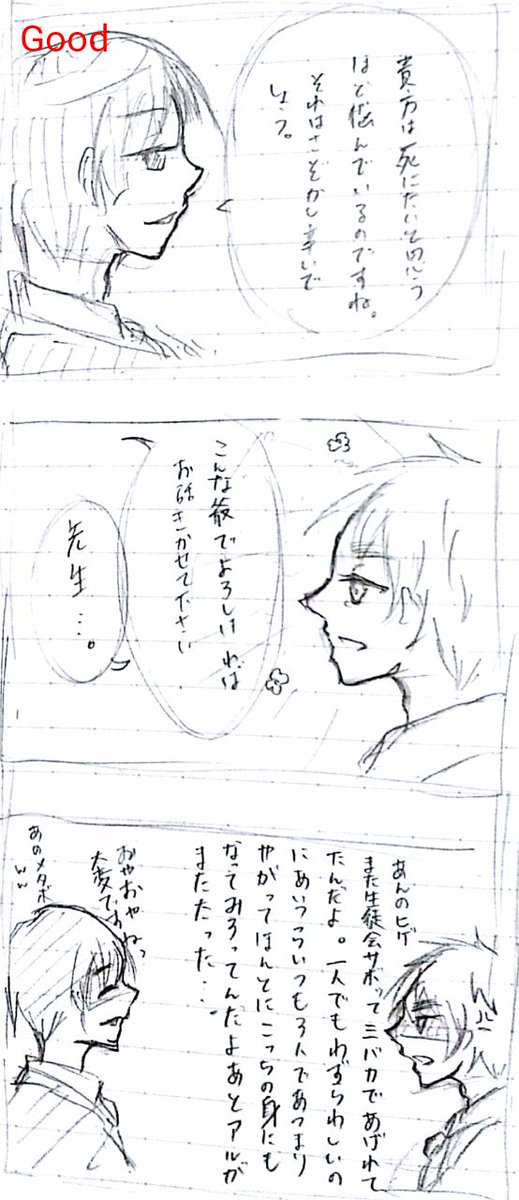 Good
貴方は死にたいと思う
ほど悩んでいるのですね。
それはさぞかし辛いで
しょう。
こんな爺でよろしければ
お話きかせて下さい
先生…。
あんのヒゲ
また生徒会サボって三バカであばれて
たんだよ。一人でもわずらわしいの
にあいつらいつも3人であつまり
やがってほんとにこっちの身にも
なってみろってんだよあとアルが
またたった...
おやおや
大変ですねっ
あのメタボ
ww